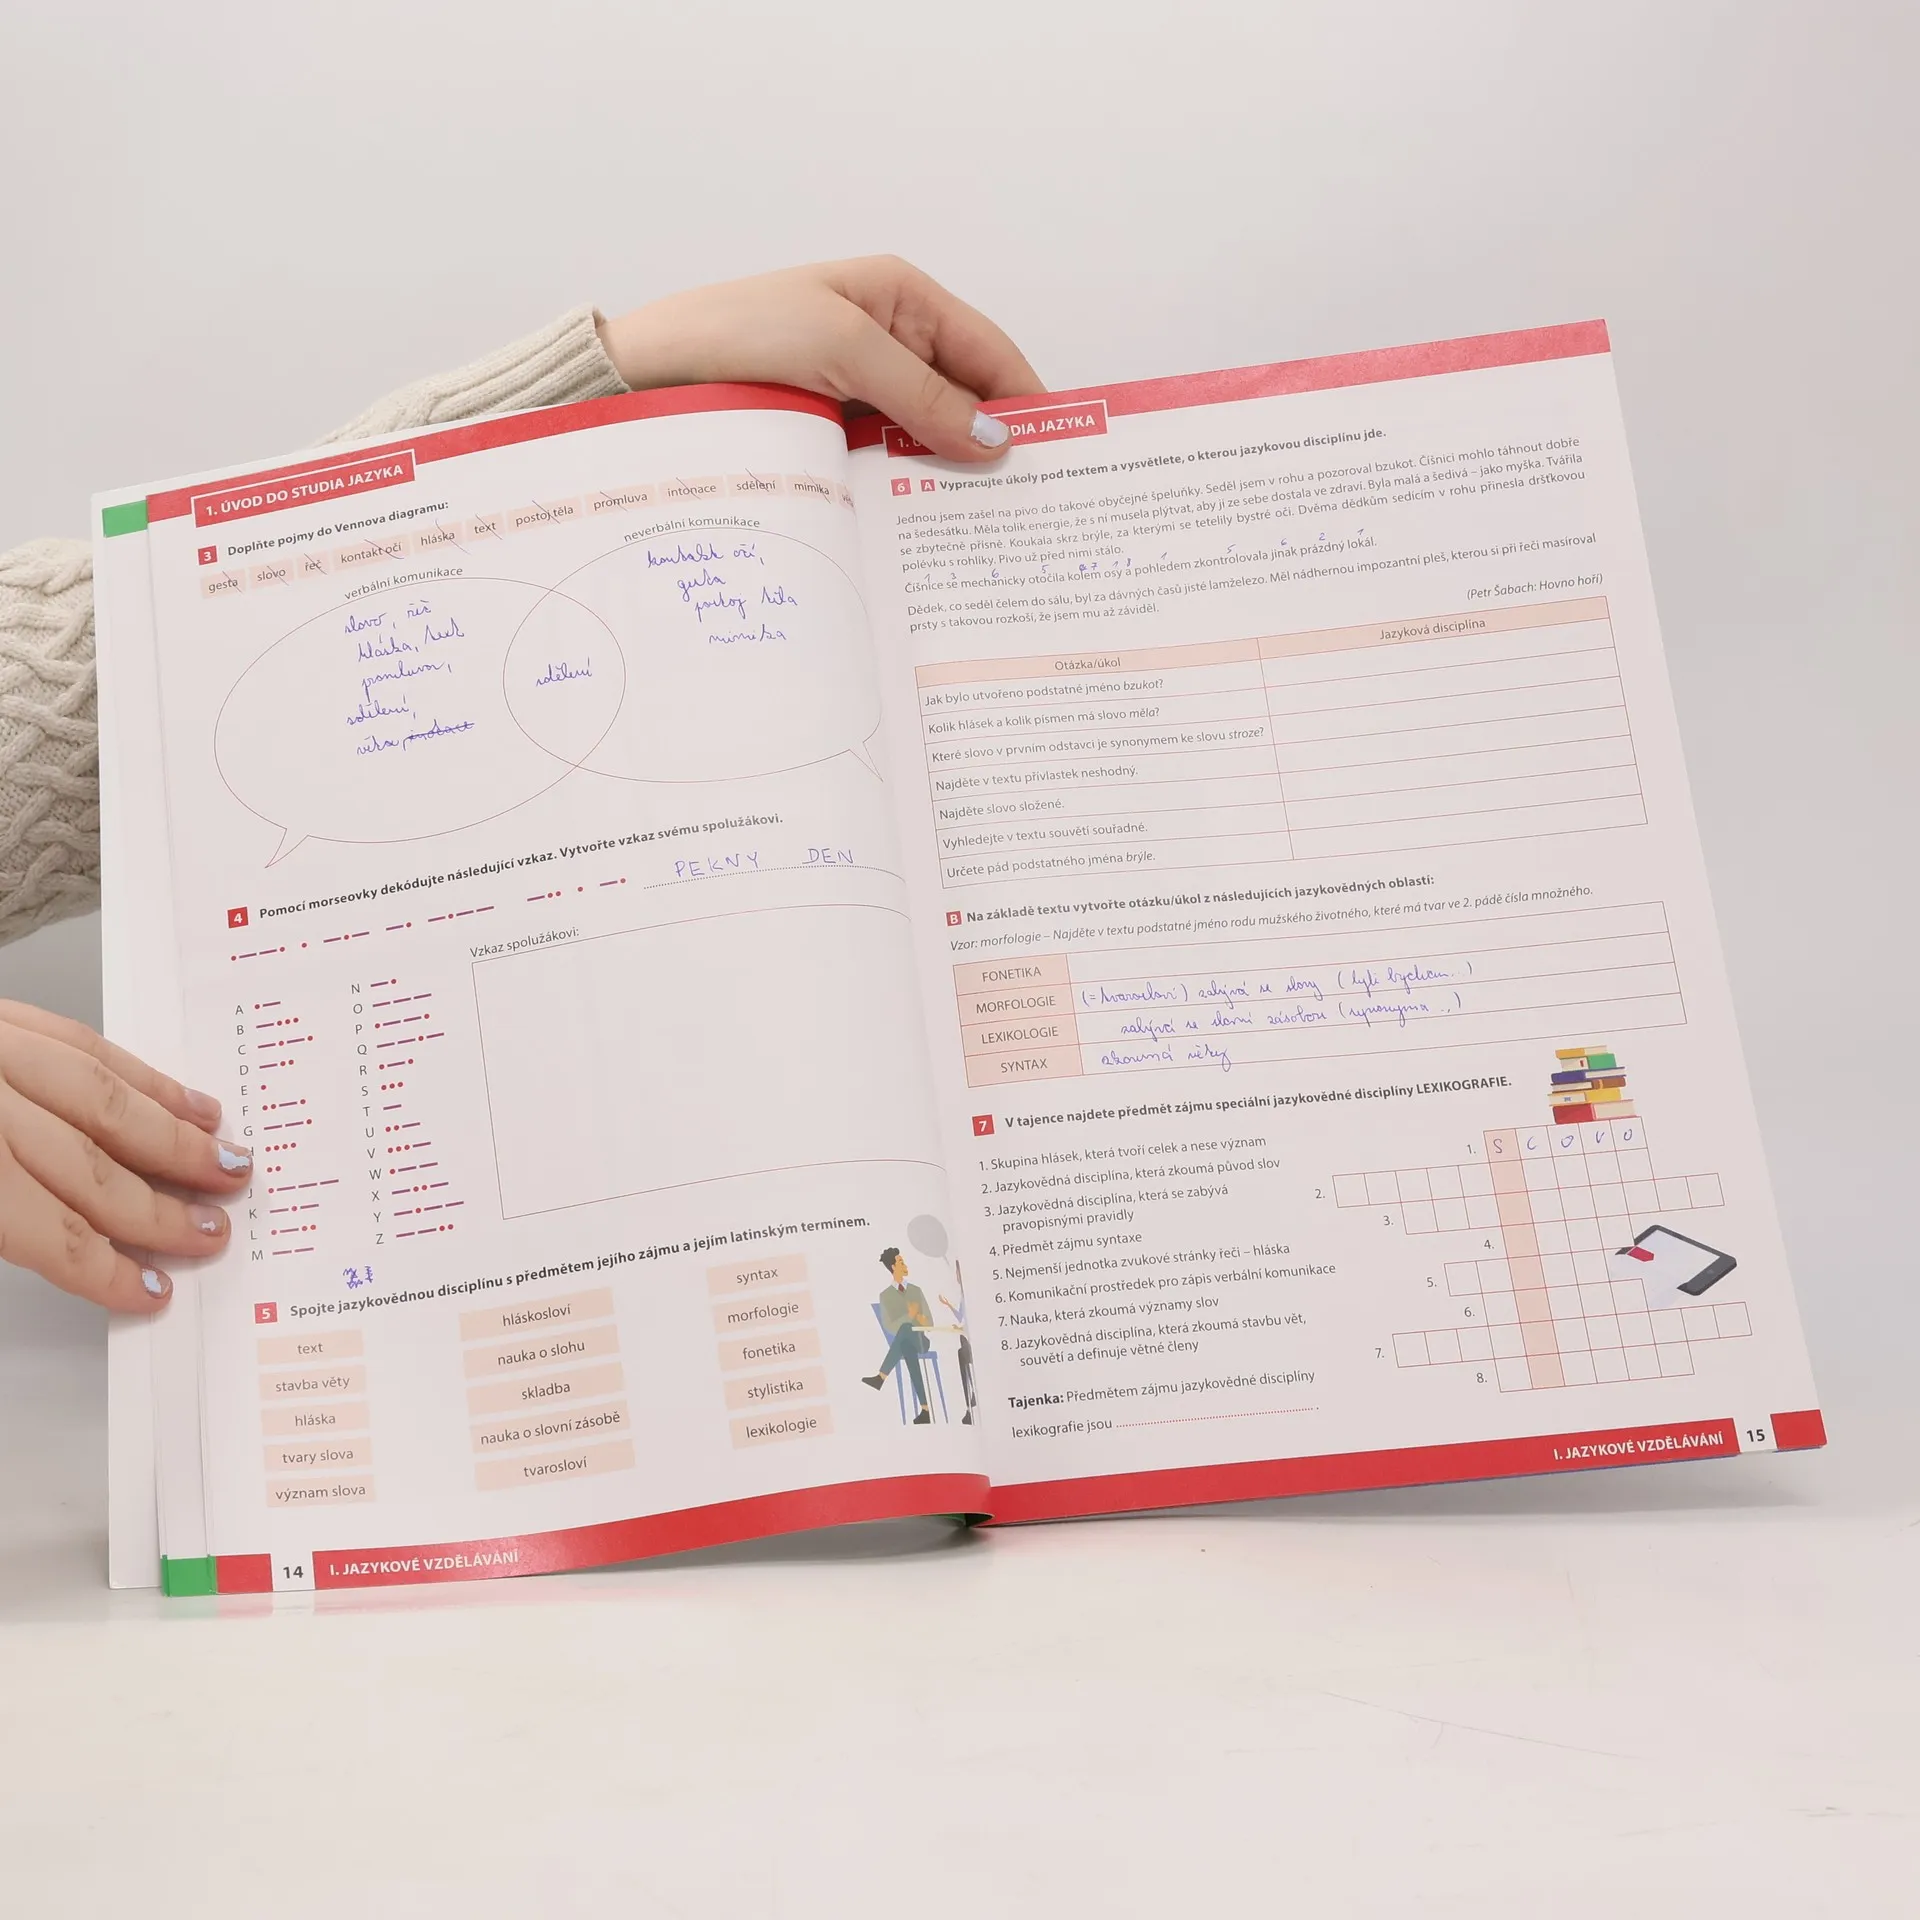 1. ÚVOD DO STUDIA JAZYKA
3 Doplňte pojmy do Vennova diagramu:
gesta slovo řeč kontakt očí hláska text postoj těla promluva intonace sdělení mimika
verbální komunikace
neverbální komunikace
slovo, řeč
hláska, text
promluva,
sdělení,
sdělení
gesta
postoj těla
mimika
4 Pomocí morseovky dekódujte následující vzkaz. Vytvořte vzkaz svému spolužákovi.
PEKNY DEN
Vzkaz spolužákovi:
A
B
C
D
E
F
G
J
K
L
M
N
O
P
Q
R
S
T
U
V
W
X
Y
Z
5 Spojte jazykovědnou disciplínu s předmětem jejího zájmu a jejím latinským termínem.
text
stavba věty
hláska
tvary slova
význam slova
hláskosloví
nauka o slohu
skladba
nauka o slovní zásobě
tvarosloví
syntax
morfologie
fonetika
stylistika
lexikologie
14 I. JAZYKOVÉ VZDĚLÁVÁNÍ
1. DIA JAZYKA
6 A Vypracujte úkoly pod textem a vysvětlete, o kterou jazykovou disciplínu jde.
Jednou jsem zašel na pivo do takové obyčejné špeluňky. Seděl jsem v rohu a pozoroval bzukot. Číšnici mohlo táhnout dobře
na šedesátku. Měla tolik energie, že s ní musela plýtvat, aby ji ze sebe dostala ve zdraví. Byla malá a šedivá – jako myška. Tvářila
se zbytečně přísně. Koukala skrz brýle, za kterými se tetelily bystré oči. Dvěma dědkům sedícím v rohu přinesla dršťkovou
polévku s rohlíky. Pivo už před nimi stálo.
Číšnice se mechanicky otočila kolem osy a pohledem zkontrolovala jinak prázdný lokál.
Dědek, co seděl čelem do sálu, byl za dávných časů jistě lamželezo. Měl nádhernou impozantní pleš, kterou si při řeči masíroval
prsty s takovou rozkoší, že jsem mu až záviděl.
(Petr Šabach: Hovno hoří)
Otázka/úkol Jazyková disciplína
Jak bylo utvořeno podstatné jméno bzukot?
Kolik hlásek a kolik písmen má slovo měla?
Které slovo v prvním odstavci je synonymem ke slovu stroze?
Najděte v textu přívlastek neshodný.
Najděte slovo složené.
Vyhledejte v textu souvětí souřadné.
Určete pád podstatného jména brýle.
B Na základě textu vytvořte otázku/úkol z následujících jazykovědných oblastí:
Vzor: morfologie – Najděte v textu podstatné jméno rodu mužského životného, které má tvar ve 2. pádě čísla množného.
FONETIKA
MORFOLOGIE (=tvarosloví) zabývá se slovy (byli bychom...)
LEXIKOLOGIE zabývá se slovní zásobou (synonyma ..)
SYNTAX zkoumá věty
7 V tajence najdete předmět zájmu speciální jazykovědné disciplíny LEXIKOGRAFIE.
1. Skupina hlásek, která tvoří celek a nese význam
2. Jazykovědná disciplína, která zkoumá původ slov
3. Jazykovědná disciplína, která se zabývá
pravopisnými pravidly
4. Předmět zájmu syntaxe
5. Nejmenší jednotka zvukové stránky řeči – hláska
6. Komunikační prostředek pro zápis verbální komunikace
7. Nauka, která zkoumá významy slov
8. Jazykovědná disciplína, která zkoumá stavbu vět,
souvětí a definuje větné členy
1. S L O V O
2.
3.
4.
5.
6.
7.
8.
Tajenka: Předmětem zájmu jazykovědné disciplíny
lexikografie jsou
I. JAZYKOVÉ VZDĚLÁVÁNÍ 15